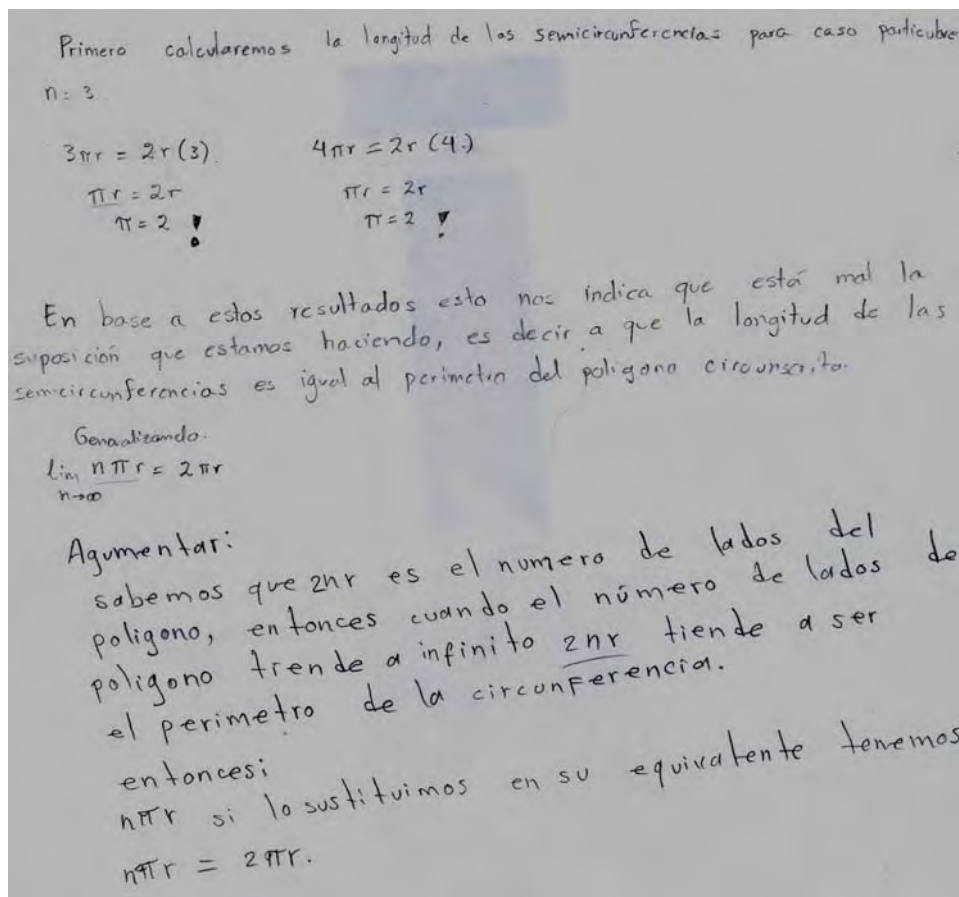 Primero calcularemos la longitud de las semicircunferencias para caso particulare
n = 3
3πr = 2r (3) 4πr = 2r (4.)
πr = 2r πr = 2r
π = 2 ! π = 2 !
En base a estos resultados esto nos indica que está mal la
suposición que estamos haciendo, es decir a que la longitud de las
semicircunferencias es igual al perimetro del poligono circunscrito.
Generalizando.
lim nπr = 2πr
n→∞
Agumentar:
sabemos que 2nr es el numero de lados del
poligono, entonces cuando el número de lados de
poligono tiende a infinito 2nr tiende a ser
el perimetro de la circunferencia.
entonces:
nπr si lo sustituimos en su equivalente tenemos
nπr = 2πr.